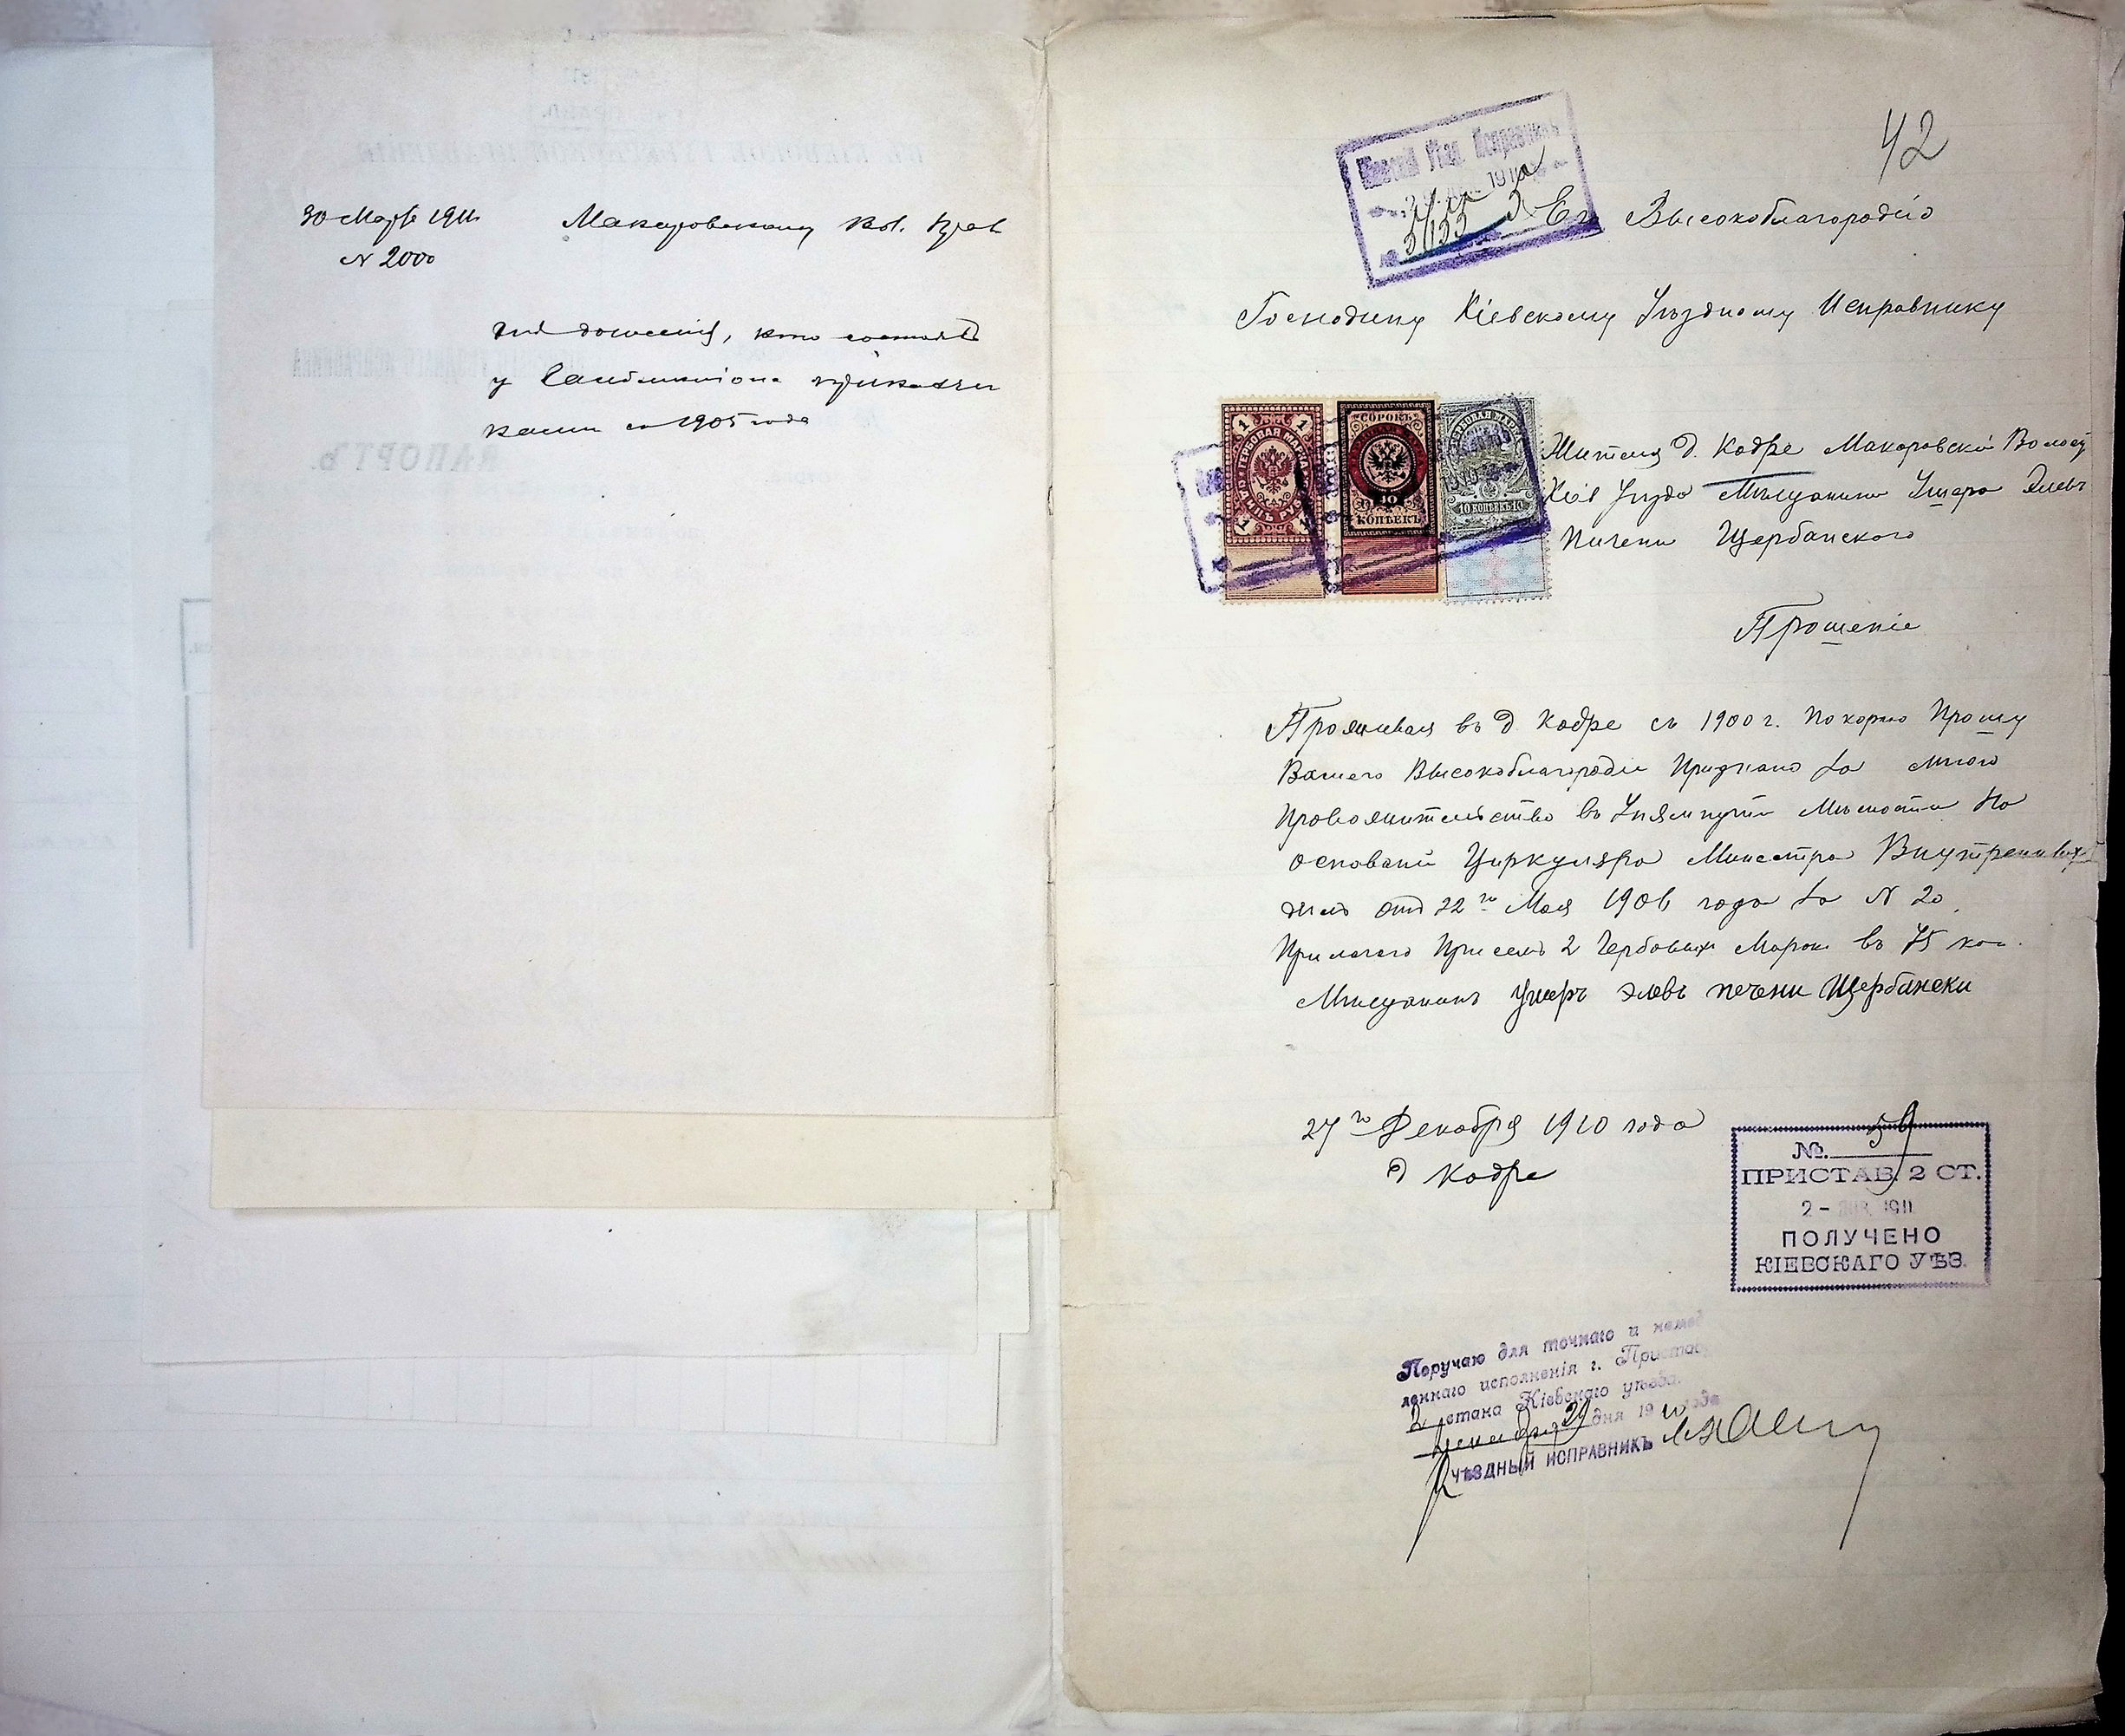 30 Марта 1911
N 2000
Макаровскому Вол. Прав
для донесения, кто состоялъ
у
ками съ 1905 года
42
Кіевскій Уѣзд. Исправникъ
Его Высокоблагородію
Господину Кіевскому Уѣздному Исправнику
1 ГЕРБОВАЯ МАРКА 1
СОРОКЪ
КОПѢЕКЪ
ГЕРБОВАЯ МАРКА
10 КОПѢЕКЪ 10
Жителя д. Кодре Макаровской Волост
Кіев Уезда Мѣщанина Ушера Элевъ
Пичени Щербанского
Прошеніе
Проживая въ д Кодре съ 1900 г. Покорно Прошу
Вашего Высокоблагородіе За мною
Правожительство въ Мѣсности На
основаніи Циркуляра Министра Внутреннихъ
дѣлъ отъ 22го Мая 1906 года За N 20
Прилагаю Присемъ 2 Гербовых Марок въ 75 коп.
Мѣщанинъ Ушеръ Элевъ печени Щербански
27го Декабря 1910 года
д Кодре
№. 59
ПРИСТАВ. 2 СТ.
2 - ЯНВ. 1911
ПОЛУЧЕНО
КІЕВСКАГО УѢЗ.
Поручаю для точнаго и немед
леннаго исполненія г. Пристав
2 стана Кіевскаго уѣзда.
Декабря 29 дня 1910 года
УѢЗДНЫЙ ИСПРАВНИКЪ